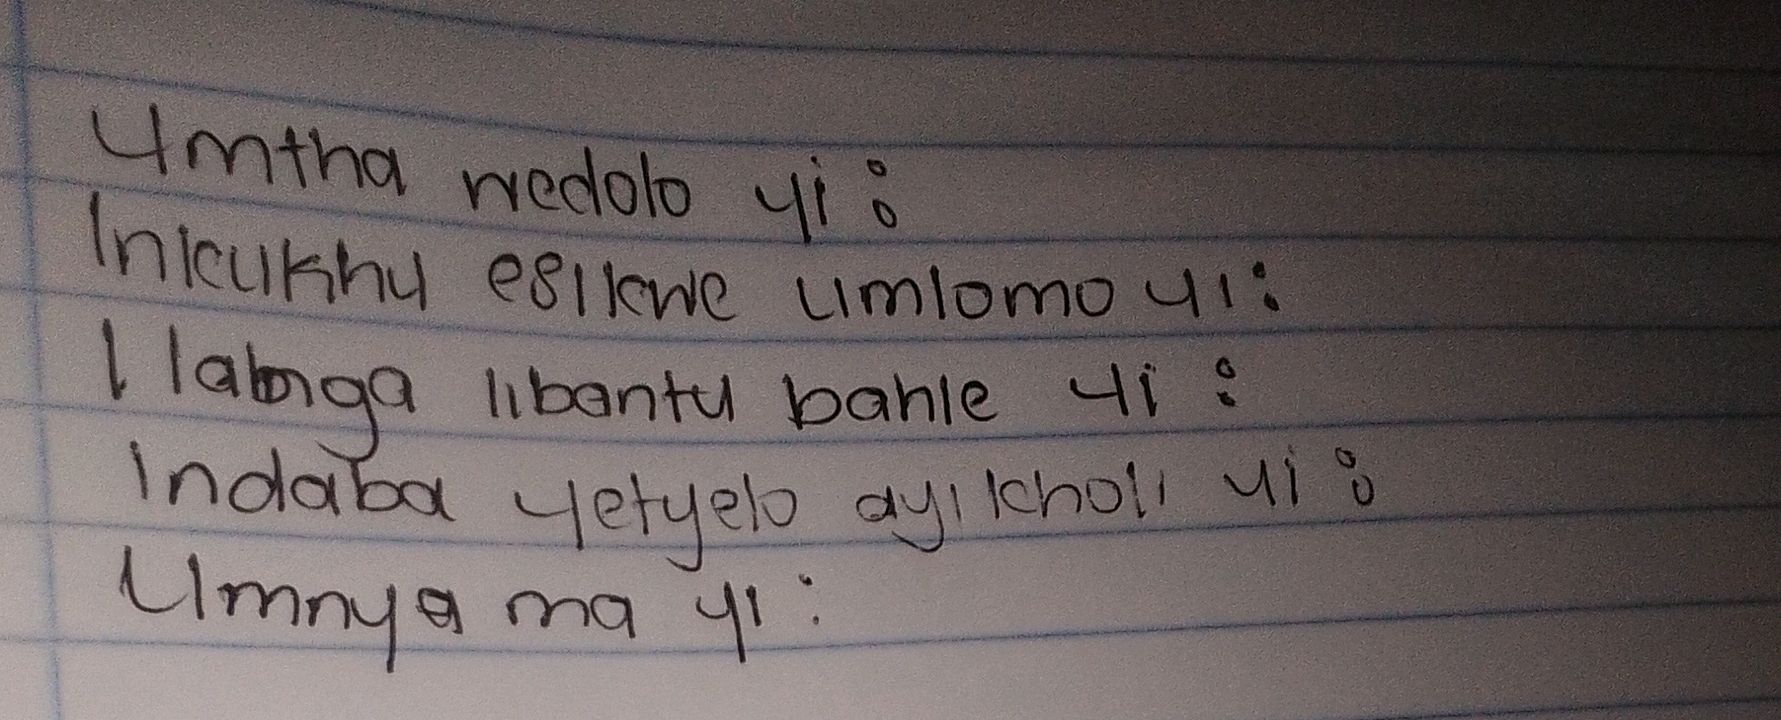 Umtha wedolo yi :
Inkukhu esikwe umlomo yi :
Ilabnga libantu bahle yi :
Indaba yetyelo ayikholi yi :
Umnya ma yi :